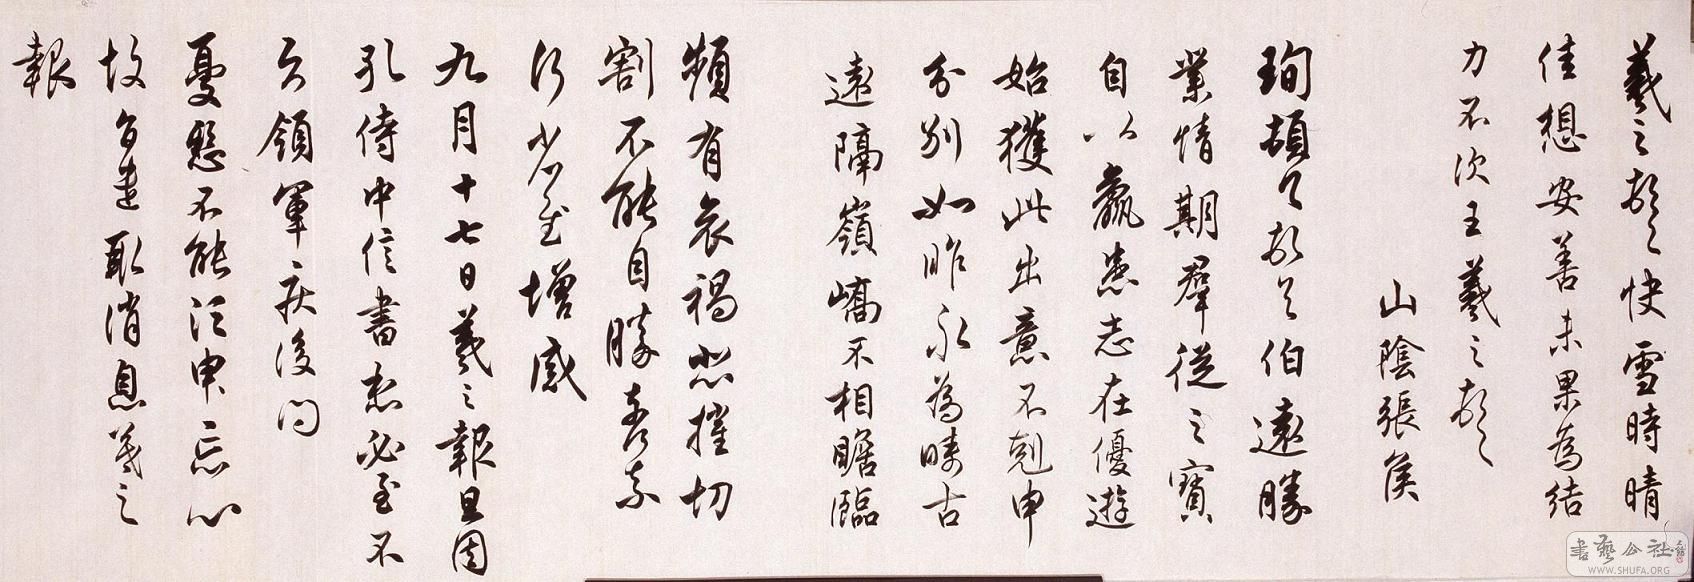 羲之頓首快雪時晴
佳想安善未果為結
力不次王羲之頓首
山陰張侯
珣頓首頓首伯遠勝
業情期群從之寶
自以羸患志在優遊
始獲此出意不剋申
分別如昨永為疇古
遠隔嶺嶠不相瞻臨
頻有哀禍悲摧切
割不能自勝奈何奈
何省慰增感
九月十七日羲之報且因
孔侍中信書想必至不
知領軍疾後問
憂懸不能須臾忘心
故旨遣取消息羲之
報
書藝公社
WWW.SHUFA.ORG